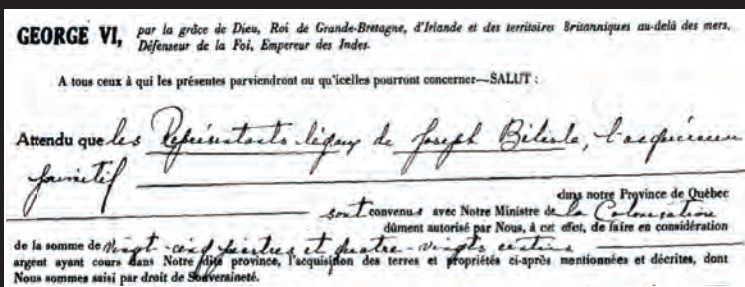 GEORGE VI, par la grâce de Dieu, Roi de Grande-Bretagne, d'Irlande et des territoires Britanniques au-delà des mers,
Défenseur de la Foi, Empereur des Indes.
A tous ceux à qui les présentes parviendront ou qu'icelles pourront concerner—SALUT :
Attendu que les Représentants légaux de Joseph Bélisle, l'acquéreur
primitif
dans notre Province de Québec
sont convenus avec Notre Ministre de la Colonisation
dûment autorisé par Nous, à cet effet, de faire en considération
de la somme de vingt-cinq piastres et quatre-vingts centins
argent ayant cours dans Notre dite province, l'acquisition des terres et propriétés ci-après mentionnées et décrites, dont
Nous sommes saisi par droit de Souveraineté.